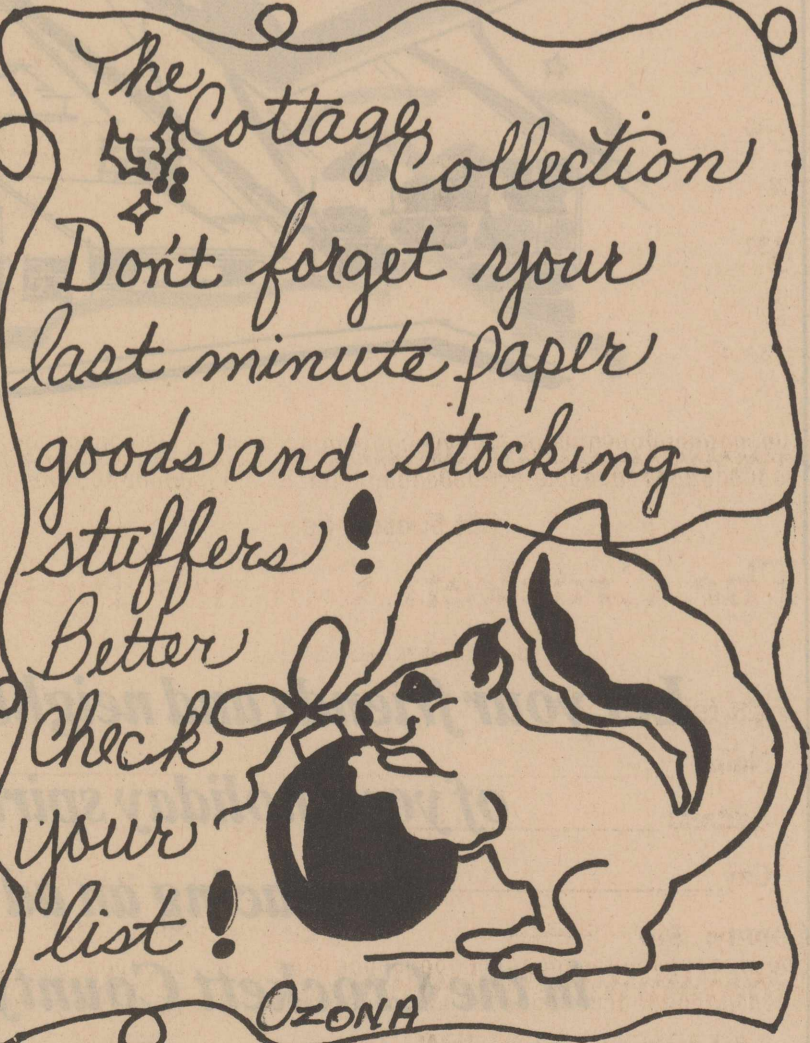 The
Cottage
Collection
Don't forget your
last minute paper
goods and stocking
stuffers!
Better
check
your
list!
OZONA